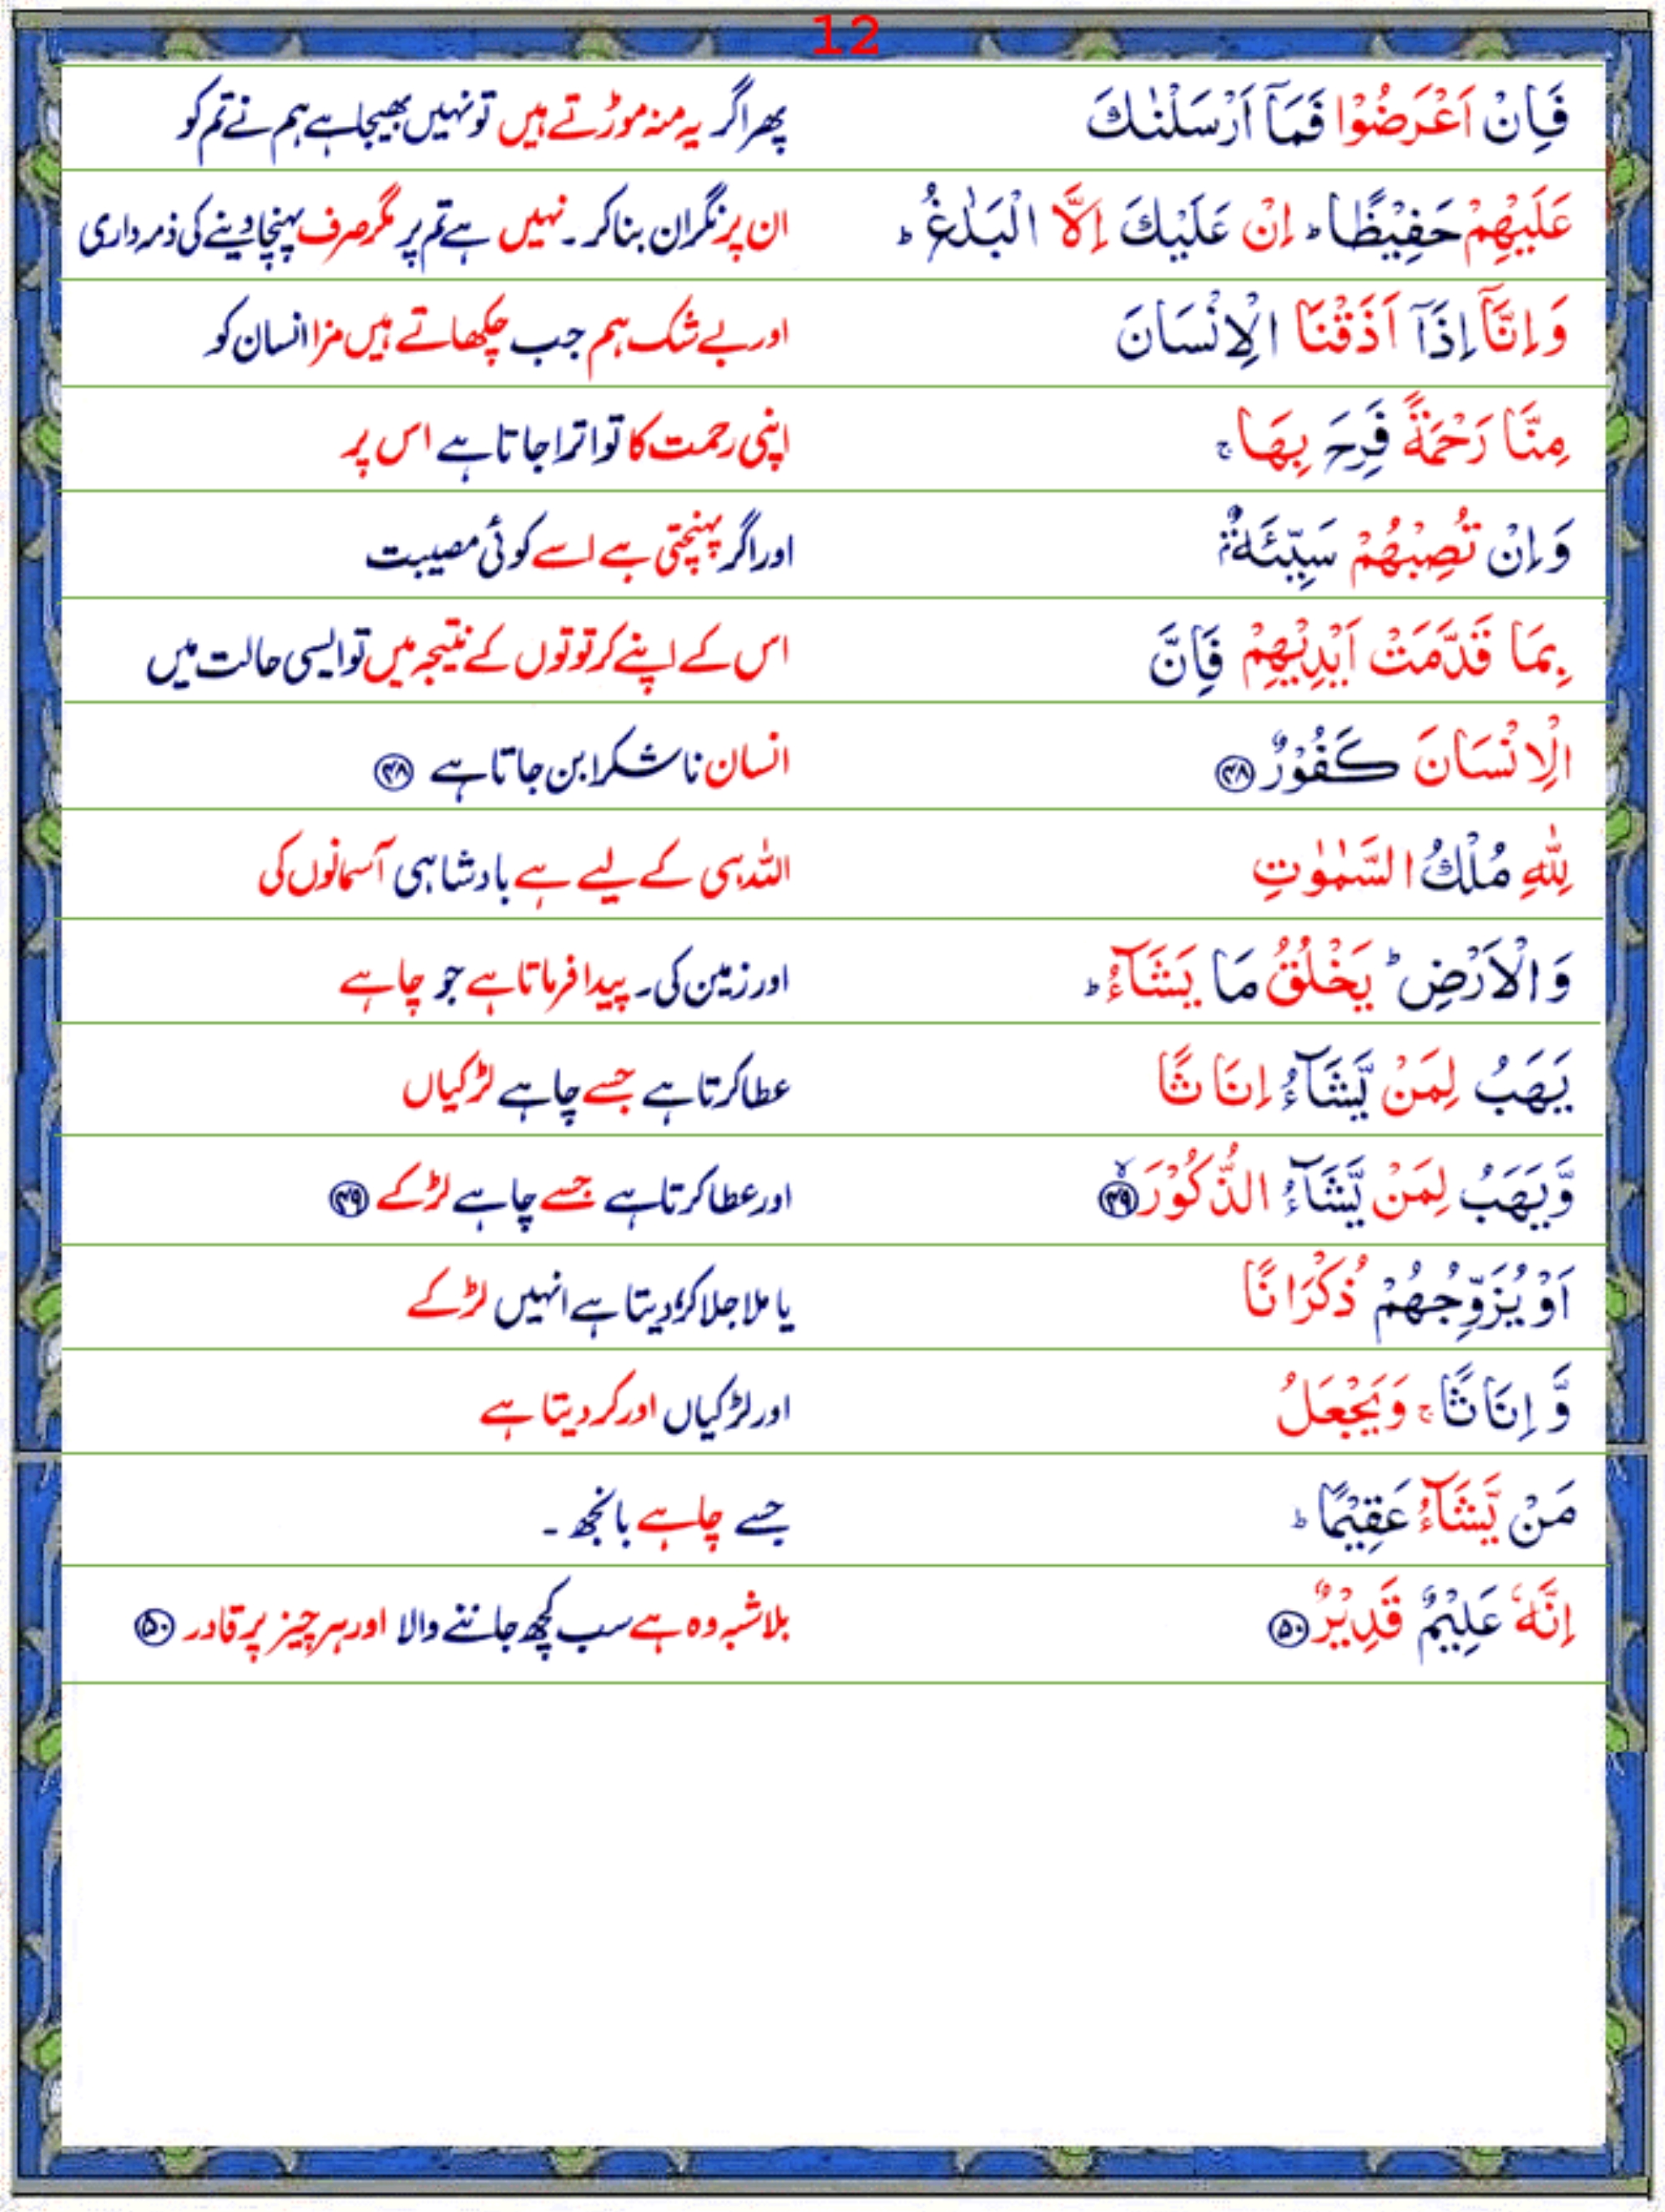 12
فَاِنْ اَعْرَضُوْا فَمَاۤ اَرْسَلْنٰكَ پھر اگر یہ منہ موڑتے ہیں تو نہیں بھیجا ہے ہم نے تم کو
عَلَيْهِمْ حَفِيْظًا ؕ اِنْ عَلَيْكَ اِلَّا الْبَلٰغُ ؕ ان پر نگران بنا کر ۔ نہیں ہے تم پر مگر صرف پہنچا دینے کی ذمہ داری
وَ اِنَّاۤ اِذَاۤ اَذَقْنَا الْاِنْسَانَ اور بے شک ہم جب چکھاتے ہیں مزا انسان کو
مِنَّا رَحْمَةً فَرِحَ بِهَا ۚ اپنی رحمت کا تو اترا جاتا ہے اس پر
وَ اِنْ تُصِبْهُمْ سَيِّئَةٌۢ اور اگر پہنچتی ہے اسے کوئی مصیبت
بِمَا قَدَّمَتْ اَيْدِيْهِمْ فَاِنَّ اس کے اپنے کرتوتوں کے نتیجہ میں تو ایسی حالت میں
الْاِنْسَانَ كَفُوْرٌ ۴۸ انسان ناشکرا بن جاتا ہے ۴۸
لِلّٰهِ مُلْكُ السَّمٰوٰتِ اللہ ہی کے لیے ہے بادشاہی آسمانوں کی
وَ الْاَرْضِ ؕ يَخْلُقُ مَا يَشَآءُ ؕ اور زمین کی۔ پیدا فرماتا ہے جو چاہے
يَهَبُ لِمَنْ يَّشَآءُ اِنَاثًا عطا کرتا ہے جسے چاہے لڑکیاں
وَّ يَهَبُ لِمَنْ يَّشَآءُ الذُّكُوْرَ ۙ ۴۹ اور عطا کرتا ہے جسے چاہے لڑکے ۴۹
اَوْ يُزَوِّجُهُمْ ذُكْرَانًا یا ملا جلا کر دیتا ہے انہیں لڑکے
وَّ اِنَاثًا ۚ وَ يَجْعَلُ اور لڑکیاں اور کر دیتا ہے
مَنْ يَّشَآءُ عَقِيْمًا ؕ جسے چاہے بانجھ ۔
اِنَّهٗ عَلِيْمٌ قَدِيْرٌ ۵۰ بلاشبہ وہ ہے سب کچھ جاننے والا اور ہر چیز پر قادر ۵۰